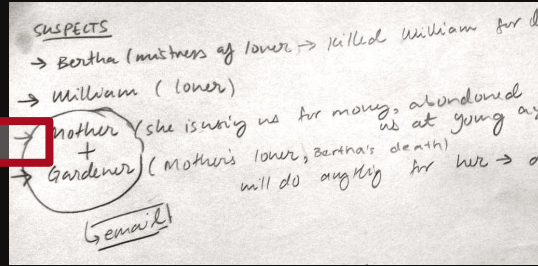 SUSPECTS
→ Bertha (mistress of lover → killed William for
→ William (lover)
→ Mother (she is using us for money, abondoned us at young
+
→ Gardener (Mother's lover, Bertha's death)
will do anything for her →
↳ email